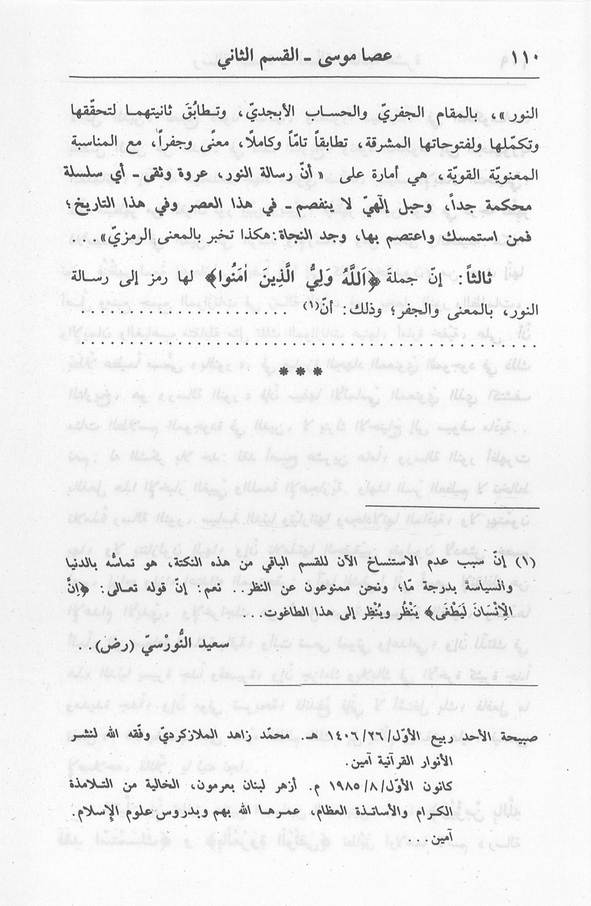 ١١٠ عصا موسى - القسم الثاني
النور»، بالمقام الجفريّ والحساب الأبجديّ، وتـطابُق ثانيتهمـا لتحقّقها
وتكمّلها ولفتوحاتها المشرقة، تطابقاً تامّاً وكاملًا، معنًى وجفراً، مع المناسبة
المعنويّة القويّة، هي أمارة على «أنّ رسالة النور، عروة وثقى ـ أي سلسلة
محكمة جداً، وحبل إلٰهيّ لا ينفصـم ـ في هذا العصر وفي هذا التاريخ؛
فمن استمسك واعتصم بها، وجد النجاة: هكذا تخبر بالمعنى الرمزيّ»...
ثالثاً: إنّ جملةَ ﴿اَللَّهُ وَلِيُّ الَّذِينَ اٰمَنُوا﴾ لها رمز إلى رسـالة
النور، بالمعنى والجفر؛ وذلك: أنّ(١) . . . . . . . . . . . . . . . . . . . . . .
. . . . . . . . . . . . . . . . . . . . . . . . . . . . . . . . . . . . . . . . . . . .
* * *
(١) إنّ سبب عدم الاستنساخ الآن للقسم الباقي من هذه النكتة، هو تماسُّه بالدنيا
والسياسة بدرجة مّا؛ ونحن ممنوعون عن النظر.. نعم: إنّ قوله تعـالى: ﴿اِنَّ
الْاِنْسَانَ لَيَطْغَى﴾ يَنْظُر ويُنْظِر إلى هذا الطاغوت...
سعيد النُّورْسيّ (رض)..
صبيحة الأحد ربيع الأوّل/٢٦/ ١٤٠٦ هـ. محمّد زاهد الملازكرديّ وفّقه الله لنشر
الأنوار القرآنية آمين.
كانون الأوّل/٨/ ١٩٨٥ م. أزهر لبنان بعرمون، الخالية من التـلامذة
الكـرام والأساتـذة العظام، عمـرهـا الله بهم وبـدروس علوم الإسلام.
آمين...